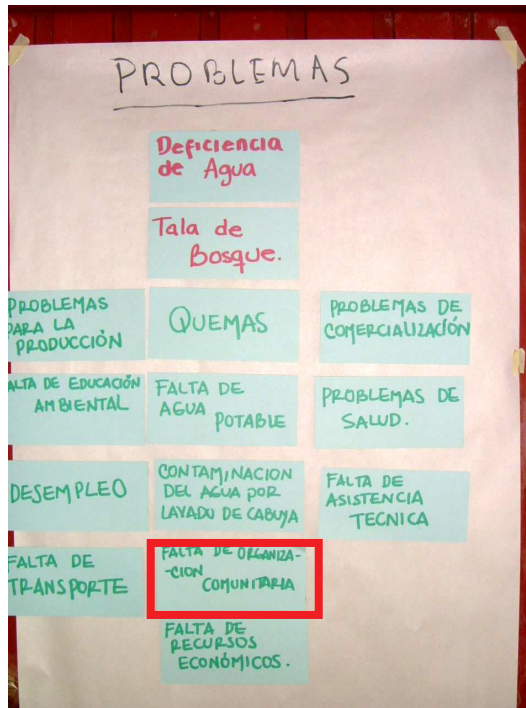 PROBLEMAS
Deficiencia
de Agua
Tala de
Bosque.
PROBLEMAS
PARA LA
PRODUCCIÓN
QUEMAS
PROBLEMAS DE
COMERCIALIZACIÓN
ALTA DE EDUCACIÓN
AMBIENTAL
FALTA DE
AGUA
POTABLE
PROBLEMAS DE
SALUD.
DESEMPLEO
CONTAMINACION
DEL AGUA POR
LAVADO DE CABUYA
FALTA DE
ASISTENCIA
TECNICA
FALTA DE
TRANSPORTE
FALTA DE ORGANIZA-
-CION
COMUNITARIA
FALTA DE
RECURSOS
ECONÓMICOS.